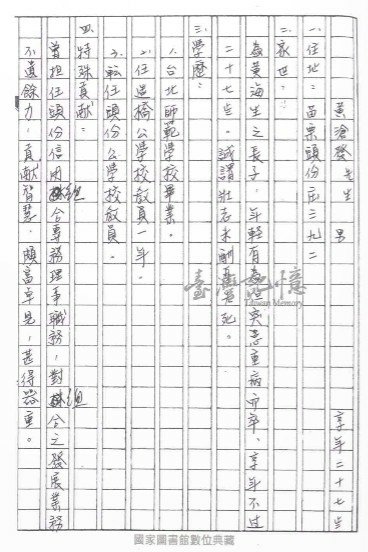 黃滄發先生　男　享年二十七歲
一、住址：苗栗頭份庄三九二
二、家世：
為黃海生之長子，年輕有為但突患重病而卒，享年不过
二十七歲。誠謂壯志未酬身先死。
三、學歷：
1.台北師範學校畢業。
2.任造橋公學校教員一年。
3.転任頭份公學校教員。
四、特殊貢献：
曾担任頭份信用組合專務理事職務，對組合之發展業務
不遺餘力，貢献智慧，頗富卓見，甚得器重。
臺灣記憶
Taiwan Memory
國家圖書館數位典藏